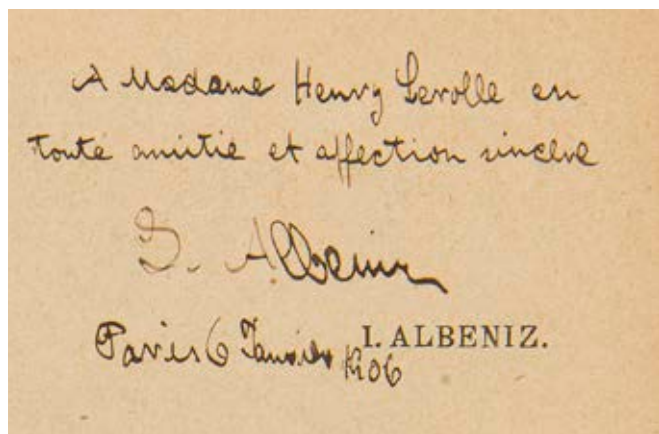 A Madame Henry Lerolle en
toute amitié et affection sincère
I. Albeniz
I. ALBENIZ.
Paris 6 Janvier 1906